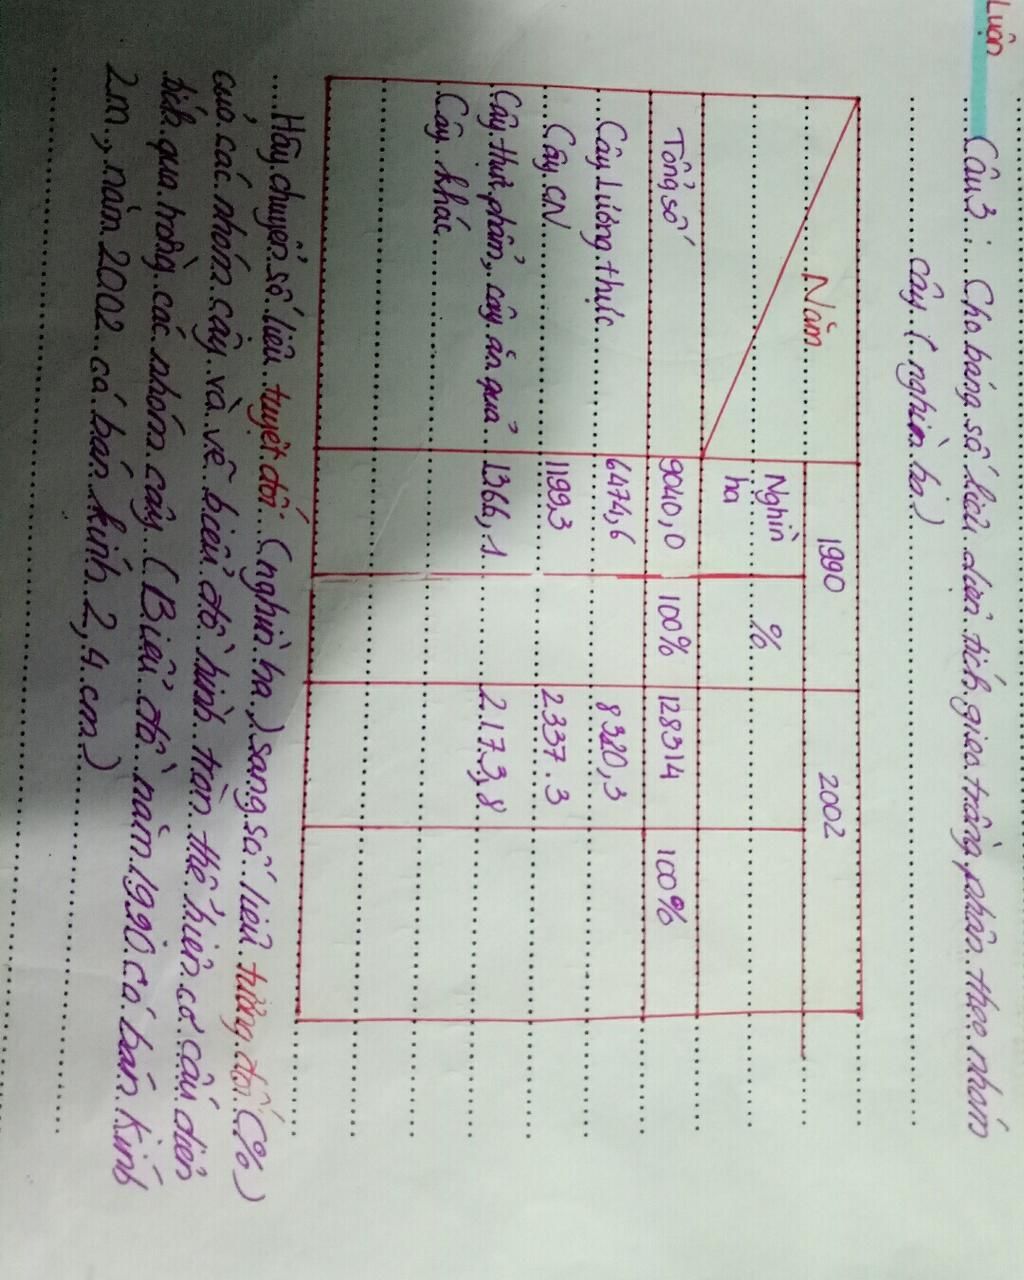 Luận
Câu 3: Cho bảng số liệu diện tích gieo trồng phân theo nhóm
cây (nghìn ha)
Năm 1990 2002
Nghìn ha % 
Tổng số 9040,0 100% 128314 100%
Cây lương thực 6474,6 8320,3
Cây CN 1199,3 2337.3
Cây thực phẩm, cây ăn quả 1366,1 2173,8
Cây khác
Hãy chuyển số liệu tuyệt đối (nghìn ha) sang số liệu tương đối (%)
của các nhóm cây và vẽ biểu đồ hình tròn thể hiện cơ cấu diện
tích qua trồng các nhóm cây (Biểu đồ năm 1990 có bán kính
2m, năm 2002 có bán kính 2,4 cm)